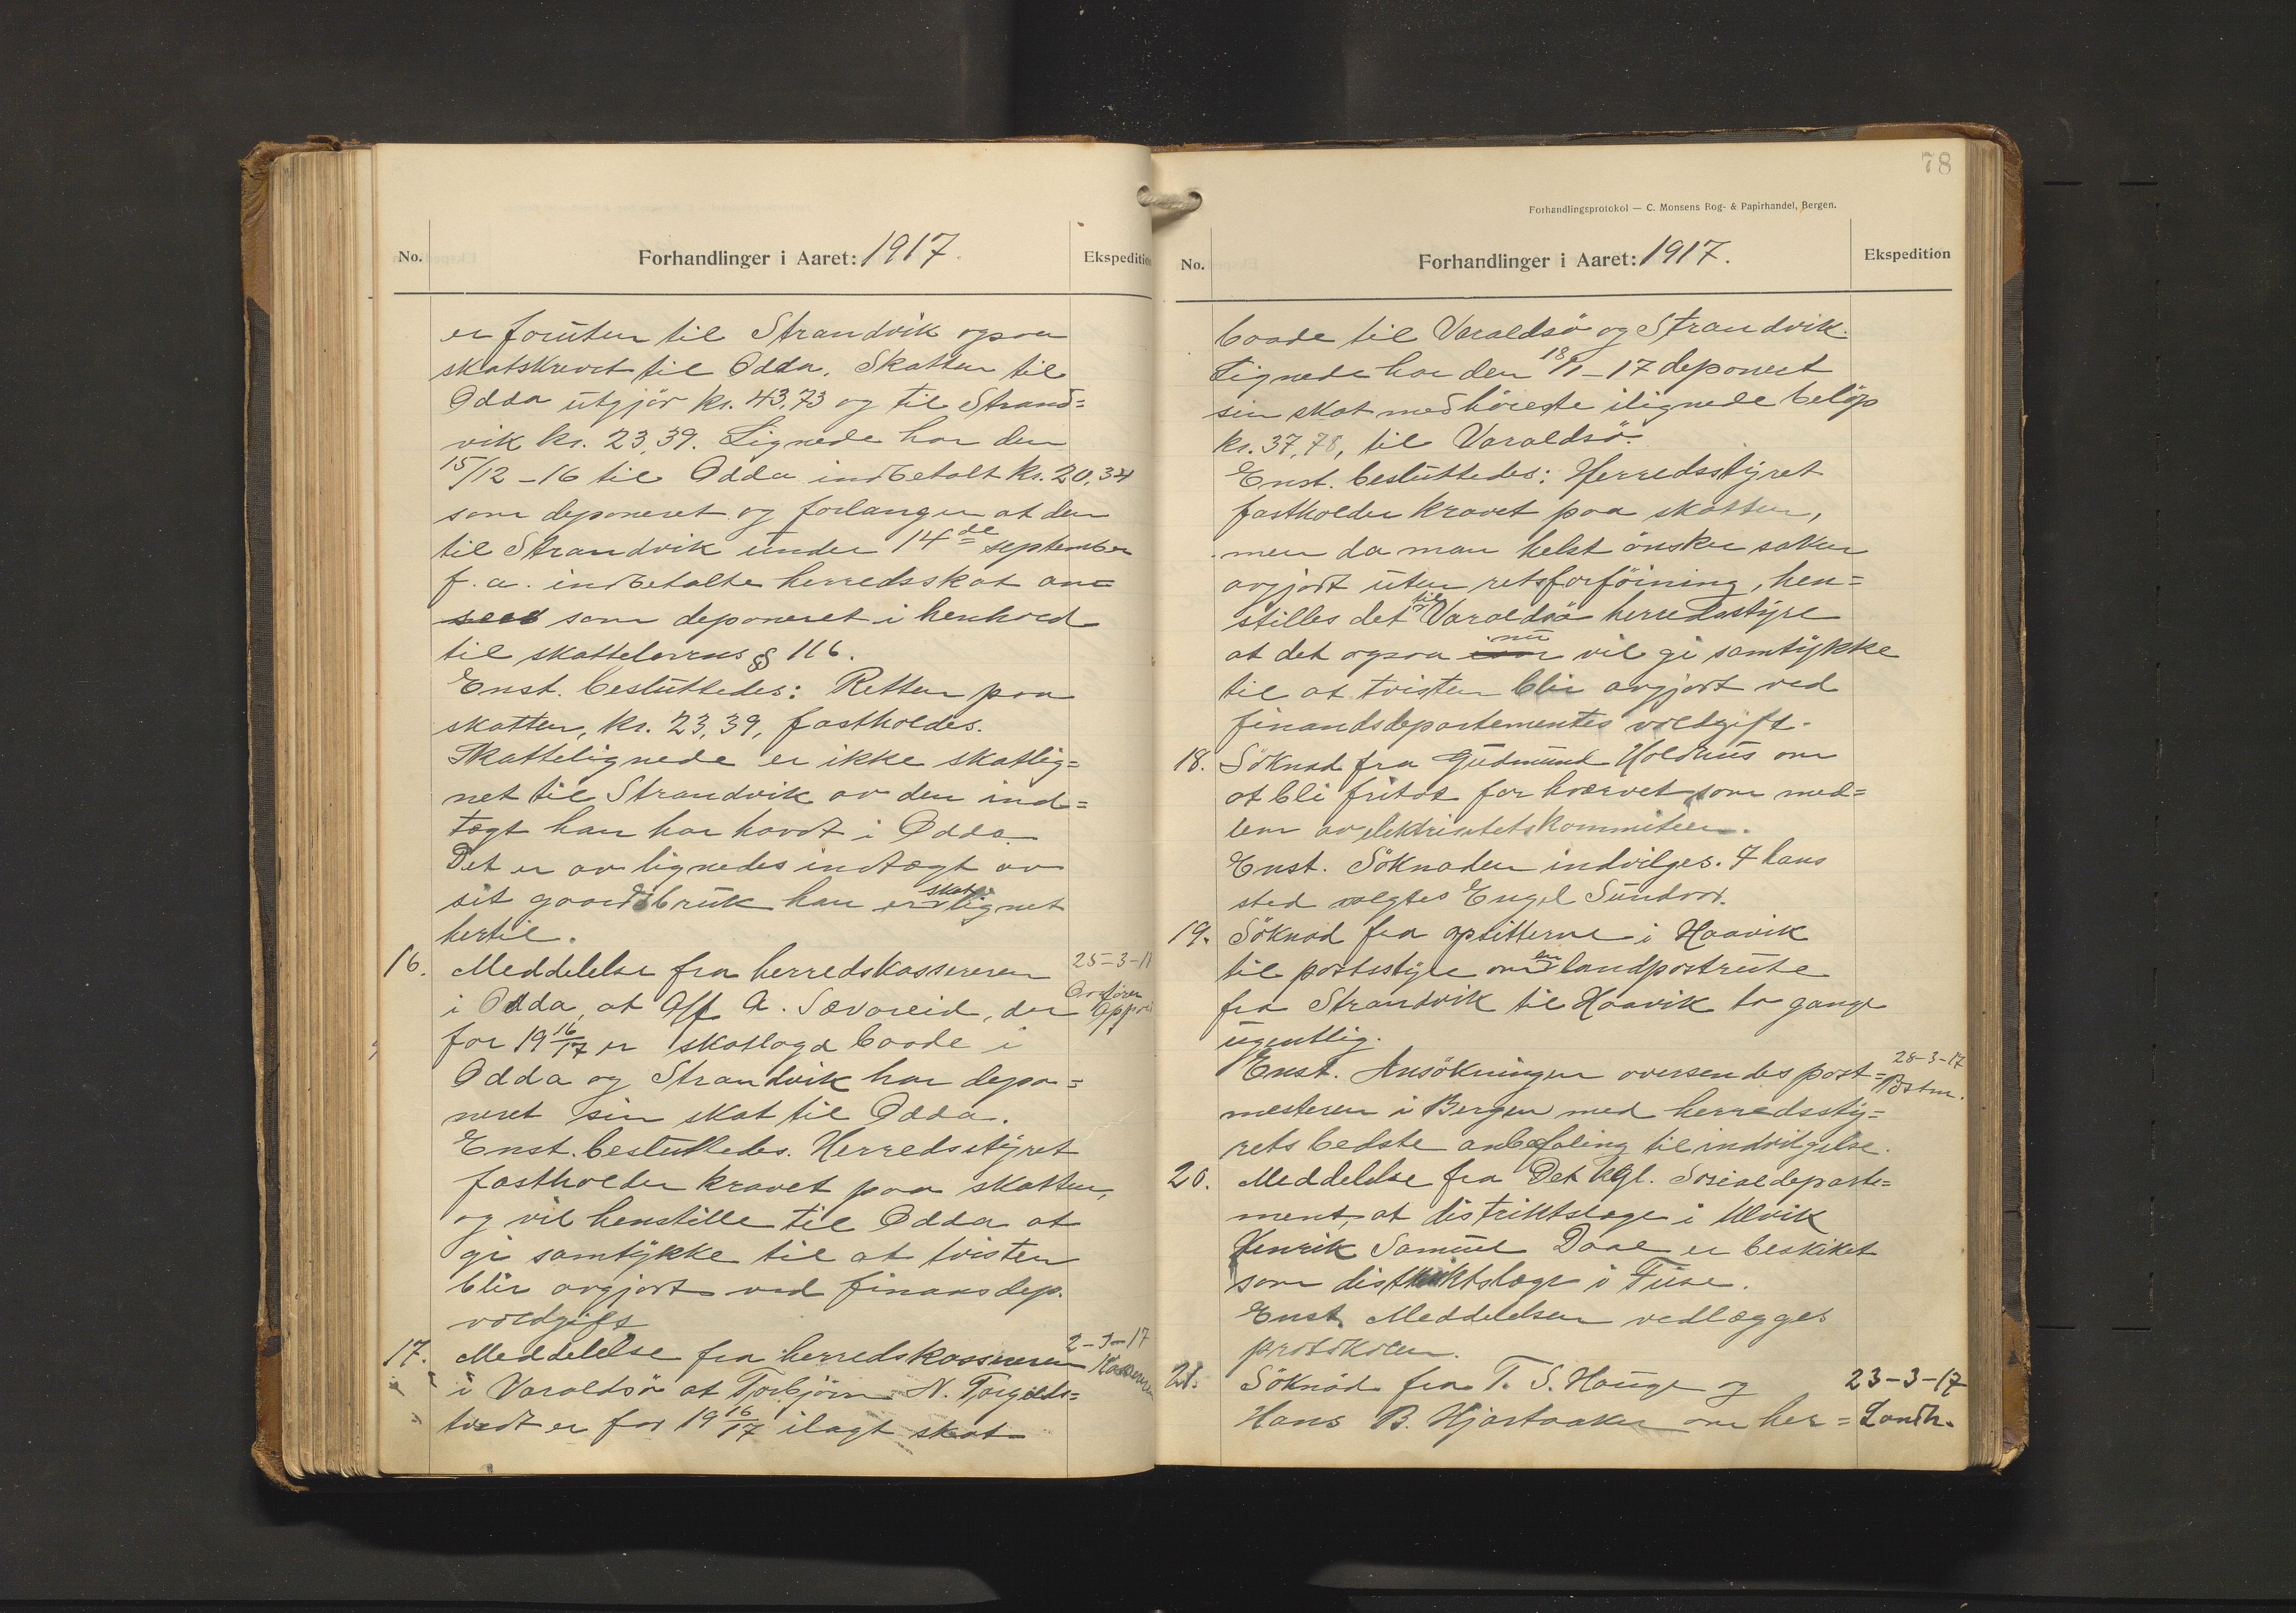 No.
Forhandlinger i Aaret: 1917.
Ekspedition
er foruten til Strandvik ogsaa
skatskrevet til Odda. Skatten til
Odda utgjör kr. 43,73 og til Strand=
vik kr. 23,39. Lignede har den
15/12-16 til Odda indbetalt kr. 20,34
som deponeret og forlanger at den
til Strandvik under 14de september
f. a. indbetalte herredsskat an=
sees som deponeret i henhold
til skattelovens § 116.
Enst. besluttedes: Retten paa
skatten, kr. 23,39, fastholdes.
Skattelignede er ikke skatlig=
net til Strandvik av den ind=
tægt han har havdt i Odda.
Det er av lignedes indtægt av
sit gaardsbruk han er skatlignet
hertil.
16.
Meddelelse fra herredskassereren
25-3-17
i Odda, at A. Sævareid, der
Ordfören
for 19 16/17 er skatlagd baade i
Odda og Strandvik har depo=
neret sin skat til Odda.
Enst. besluttedes. Herredsstyret
fastholder kravet paa skatten,
og vil henstille til Odda at
gi samtykke til at tvisten
blir avgjort ved finansdep.
voldgift
17.
Meddelelse fra herredskassereren
2-3-17
Kasseren
i Varaldsö at Torbjörn N. Torgilds=
tvedt er for 19 16/17 ilagt skat
78
Forhandlingsprotokol — C. Monsens Bog- & Papirhandel, Bergen.
No.
Forhandlinger i Aaret: 1917.
Ekspedition
baade til Varaldsö og Strandvik.
Lignede har den 18/1-17 deponert
sin skat med höieste ilignede belöp
kr. 37,78, til Varaldsö.
Enst. besluttedes: Herredsstyret
fastholder kravet paa skatten,
men da man helst önsker saken
avgjort uten retsforföining, hen=
stilles det til Varaldsö herredsstyre
at det ogsaa nu vil gi samtykke
til at tvisten blir avgjort ved
finandsdepartementets voldgift.
18.
Söknad fra Gudmund Holdhus om
at bli fritat for hvervet som med=
lem av elektrisitetskommiteen.
Enst. Söknaden indvilges. I hans
sted valgtes Engel Sundvor.
19.
Söknad fra opsitterne i Haavik
til poststyre om en landpostrute
fra Strandvik til Haavik to gange
ugentlig.
Enst. Ansökningen oversendes post=
28-3-17
Postm.
mesteren i Bergen med herredssty=
rets bedste anbefaling til indvilgelse.
20.
Meddelelse fra Det kgl. Sosialdeparte=
ment, at distriktslæge i Ulvik
Henrik Samuel Daae er beskiket
som distriktslæge i Fuse.
Enst. Meddelelsen vedlægges
protokolen.
21.
Söknad fra T. S. Hauge og
23-3-17
Hans B. Hjartaaker om her=
Landh.